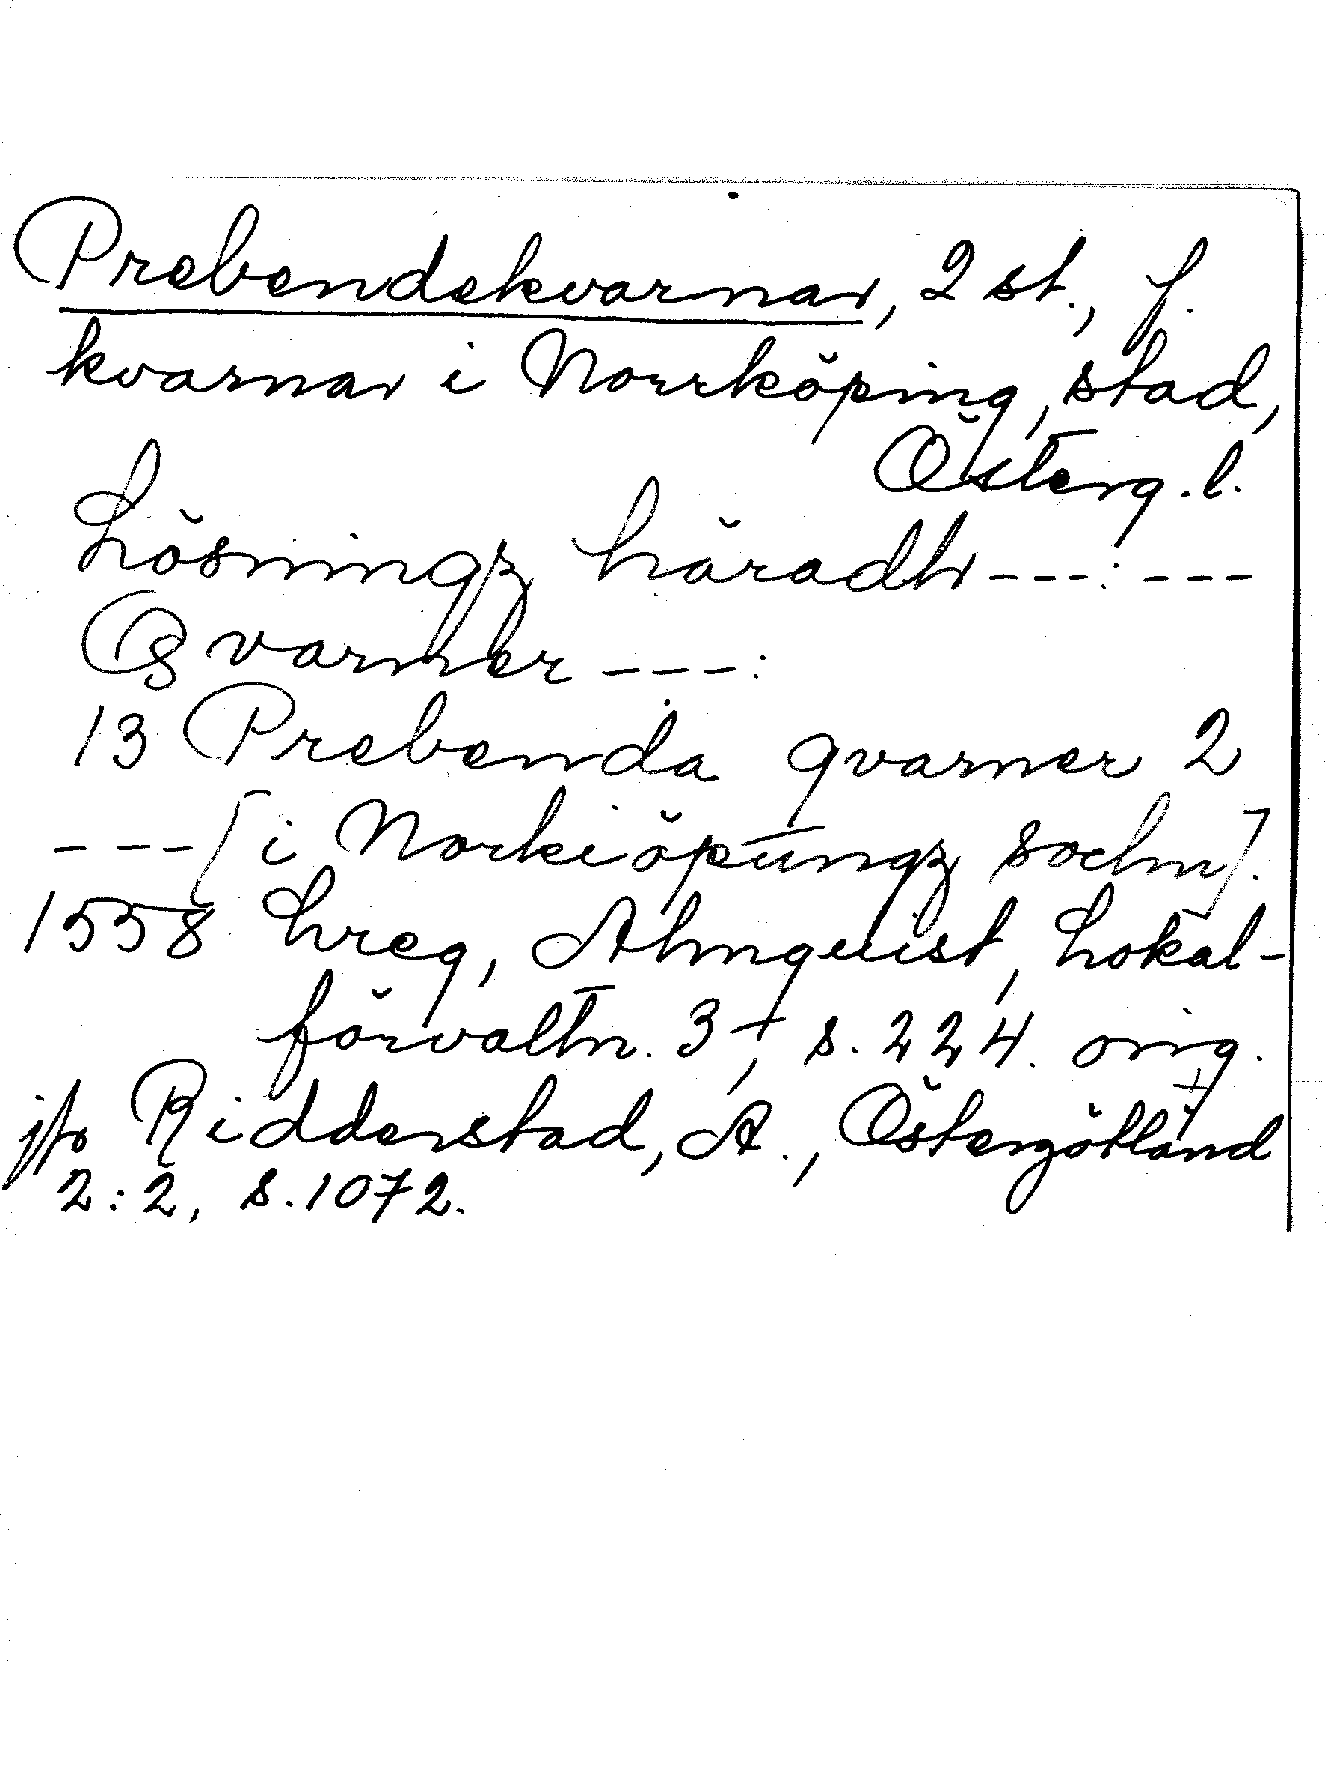 Prebendekvarnar, 2 st., f.
kvarnar i Norrköping, stad,
Österg. l.
Lösningz häradh ---: ---
Qvarner ---:
13 Prebenda qvarner 2
--- [i Norkiöpungz sochn].
1558 Lreg, Almquist, Lokal-
förvaltn. 3, s. 224. orig.
jfr Ridderstad, A., Östergötland
2:2, s. 1072.